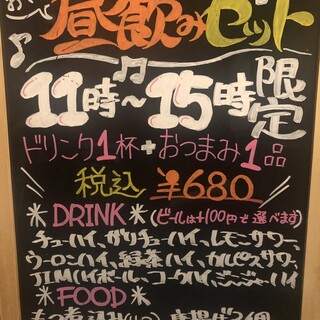 昼飲みセット
11時〜15時限定
ドリンク1杯+おつまみ1品
税込 ¥680
*DRINK*(ビールは+100円で選べます)
チューハイ、ガリチューハイ、レモンサワー、
ウーロンハイ、緑茶ハイ、カルピスサワー、
JIMハイボール、コークハイ、ジンジャーハイ
*FOOD*
もつ煮込み 唐揚げ3個